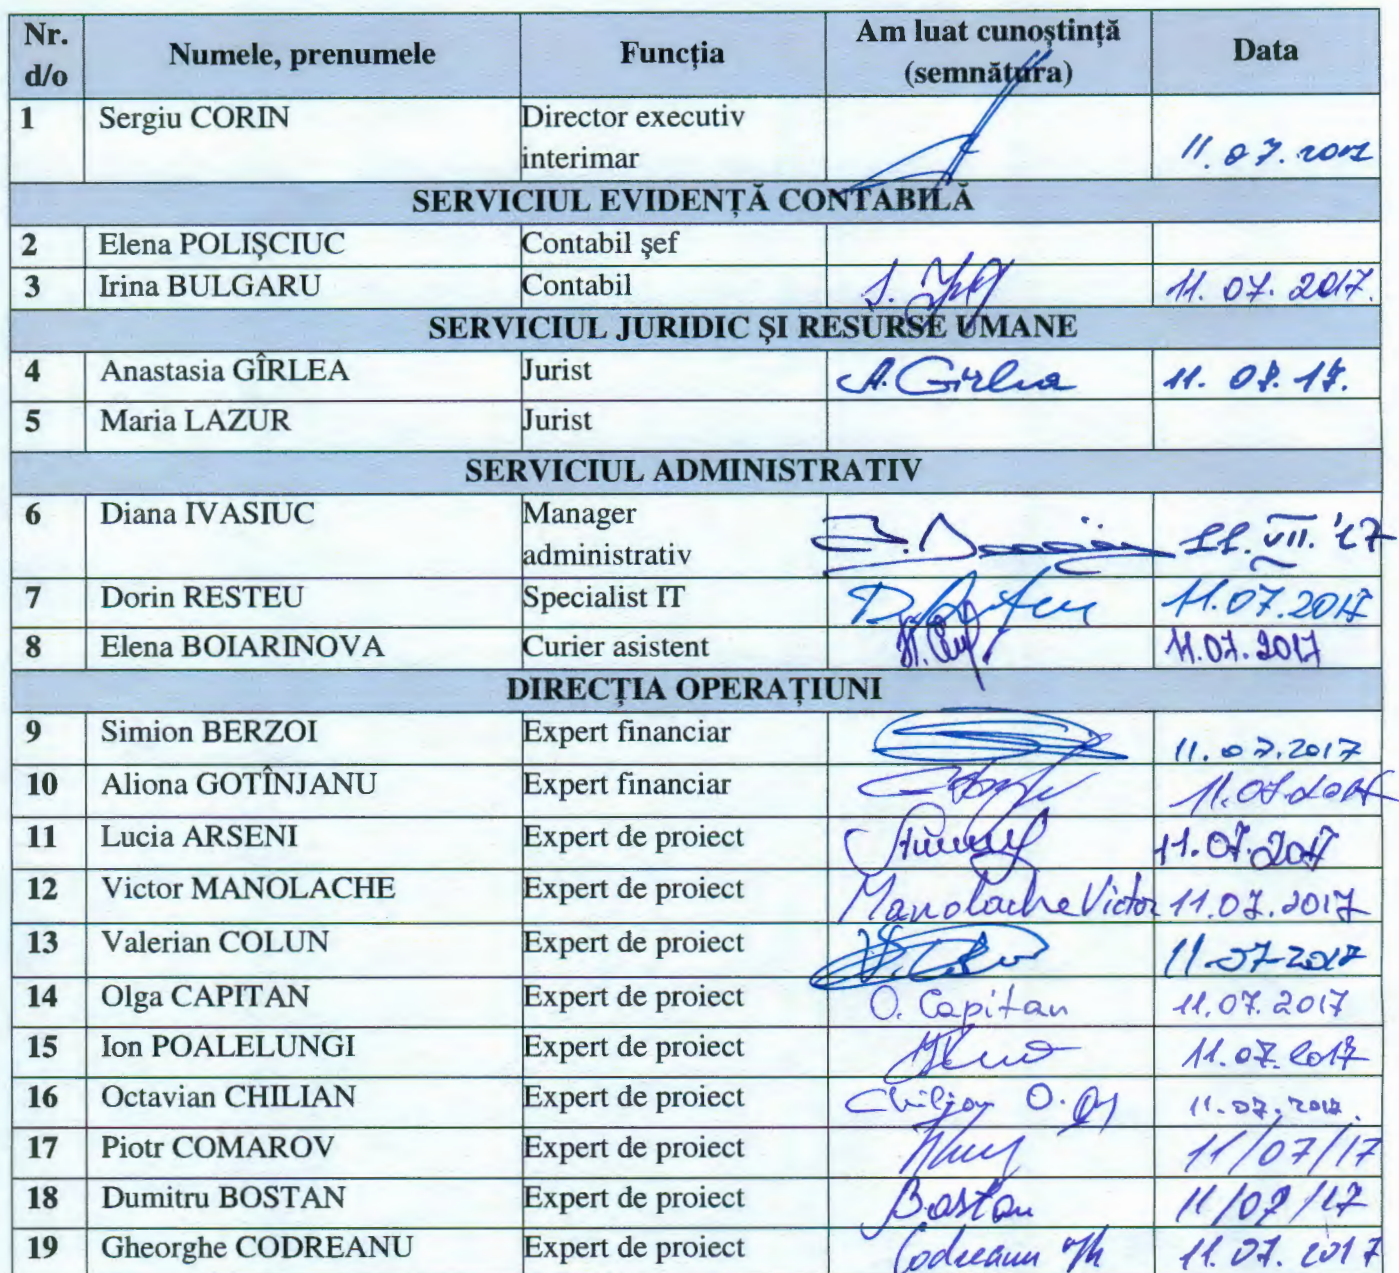 Nr. d/o Numele, prenumele Funcția Am luat cunoștință (semnătura) Data
1 Sergiu CORIN Director executiv interimar 11.07.2017
SERVICIUL EVIDENȚĂ CONTABILĂ
2 Elena POLIȘCIUC Contabil șef
3 Irina BULGARU Contabil 11.07.2017.
SERVICIUL JURIDIC ȘI RESURSE UMANE
4 Anastasia GÎRLEA Jurist A. Girlea 11.07.17.
5 Maria LAZUR Jurist
SERVICIUL ADMINISTRATIV
6 Diana IVASIUC Manager administrativ 11.VII.'17
7 Dorin RESTEU Specialist IT 11.07.2017
8 Elena BOIARINOVA Curier asistent 11.07.2017
DIRECȚIA OPERAȚIUNI
9 Simion BERZOI Expert financiar 11.07.2017
10 Aliona GOTÎNJANU Expert financiar 11.07.2017
11 Lucia ARSENI Expert de proiect 11.07.2017
12 Victor MANOLACHE Expert de proiect Manolache Victor 11.07.2017
13 Valerian COLUN Expert de proiect 11.07.2017
14 Olga CAPITAN Expert de proiect O. Capitan 11.07.2017
15 Ion POALELUNGI Expert de proiect 11.07.2017
16 Octavian CHILIAN Expert de proiect Chilian O. 11.07.2017.
17 Piotr COMAROV Expert de proiect 11/07/17
18 Dumitru BOSTAN Expert de proiect Bostan 11/07/17
19 Gheorghe CODREANU Expert de proiect Codreanu Gh 11.07.2017